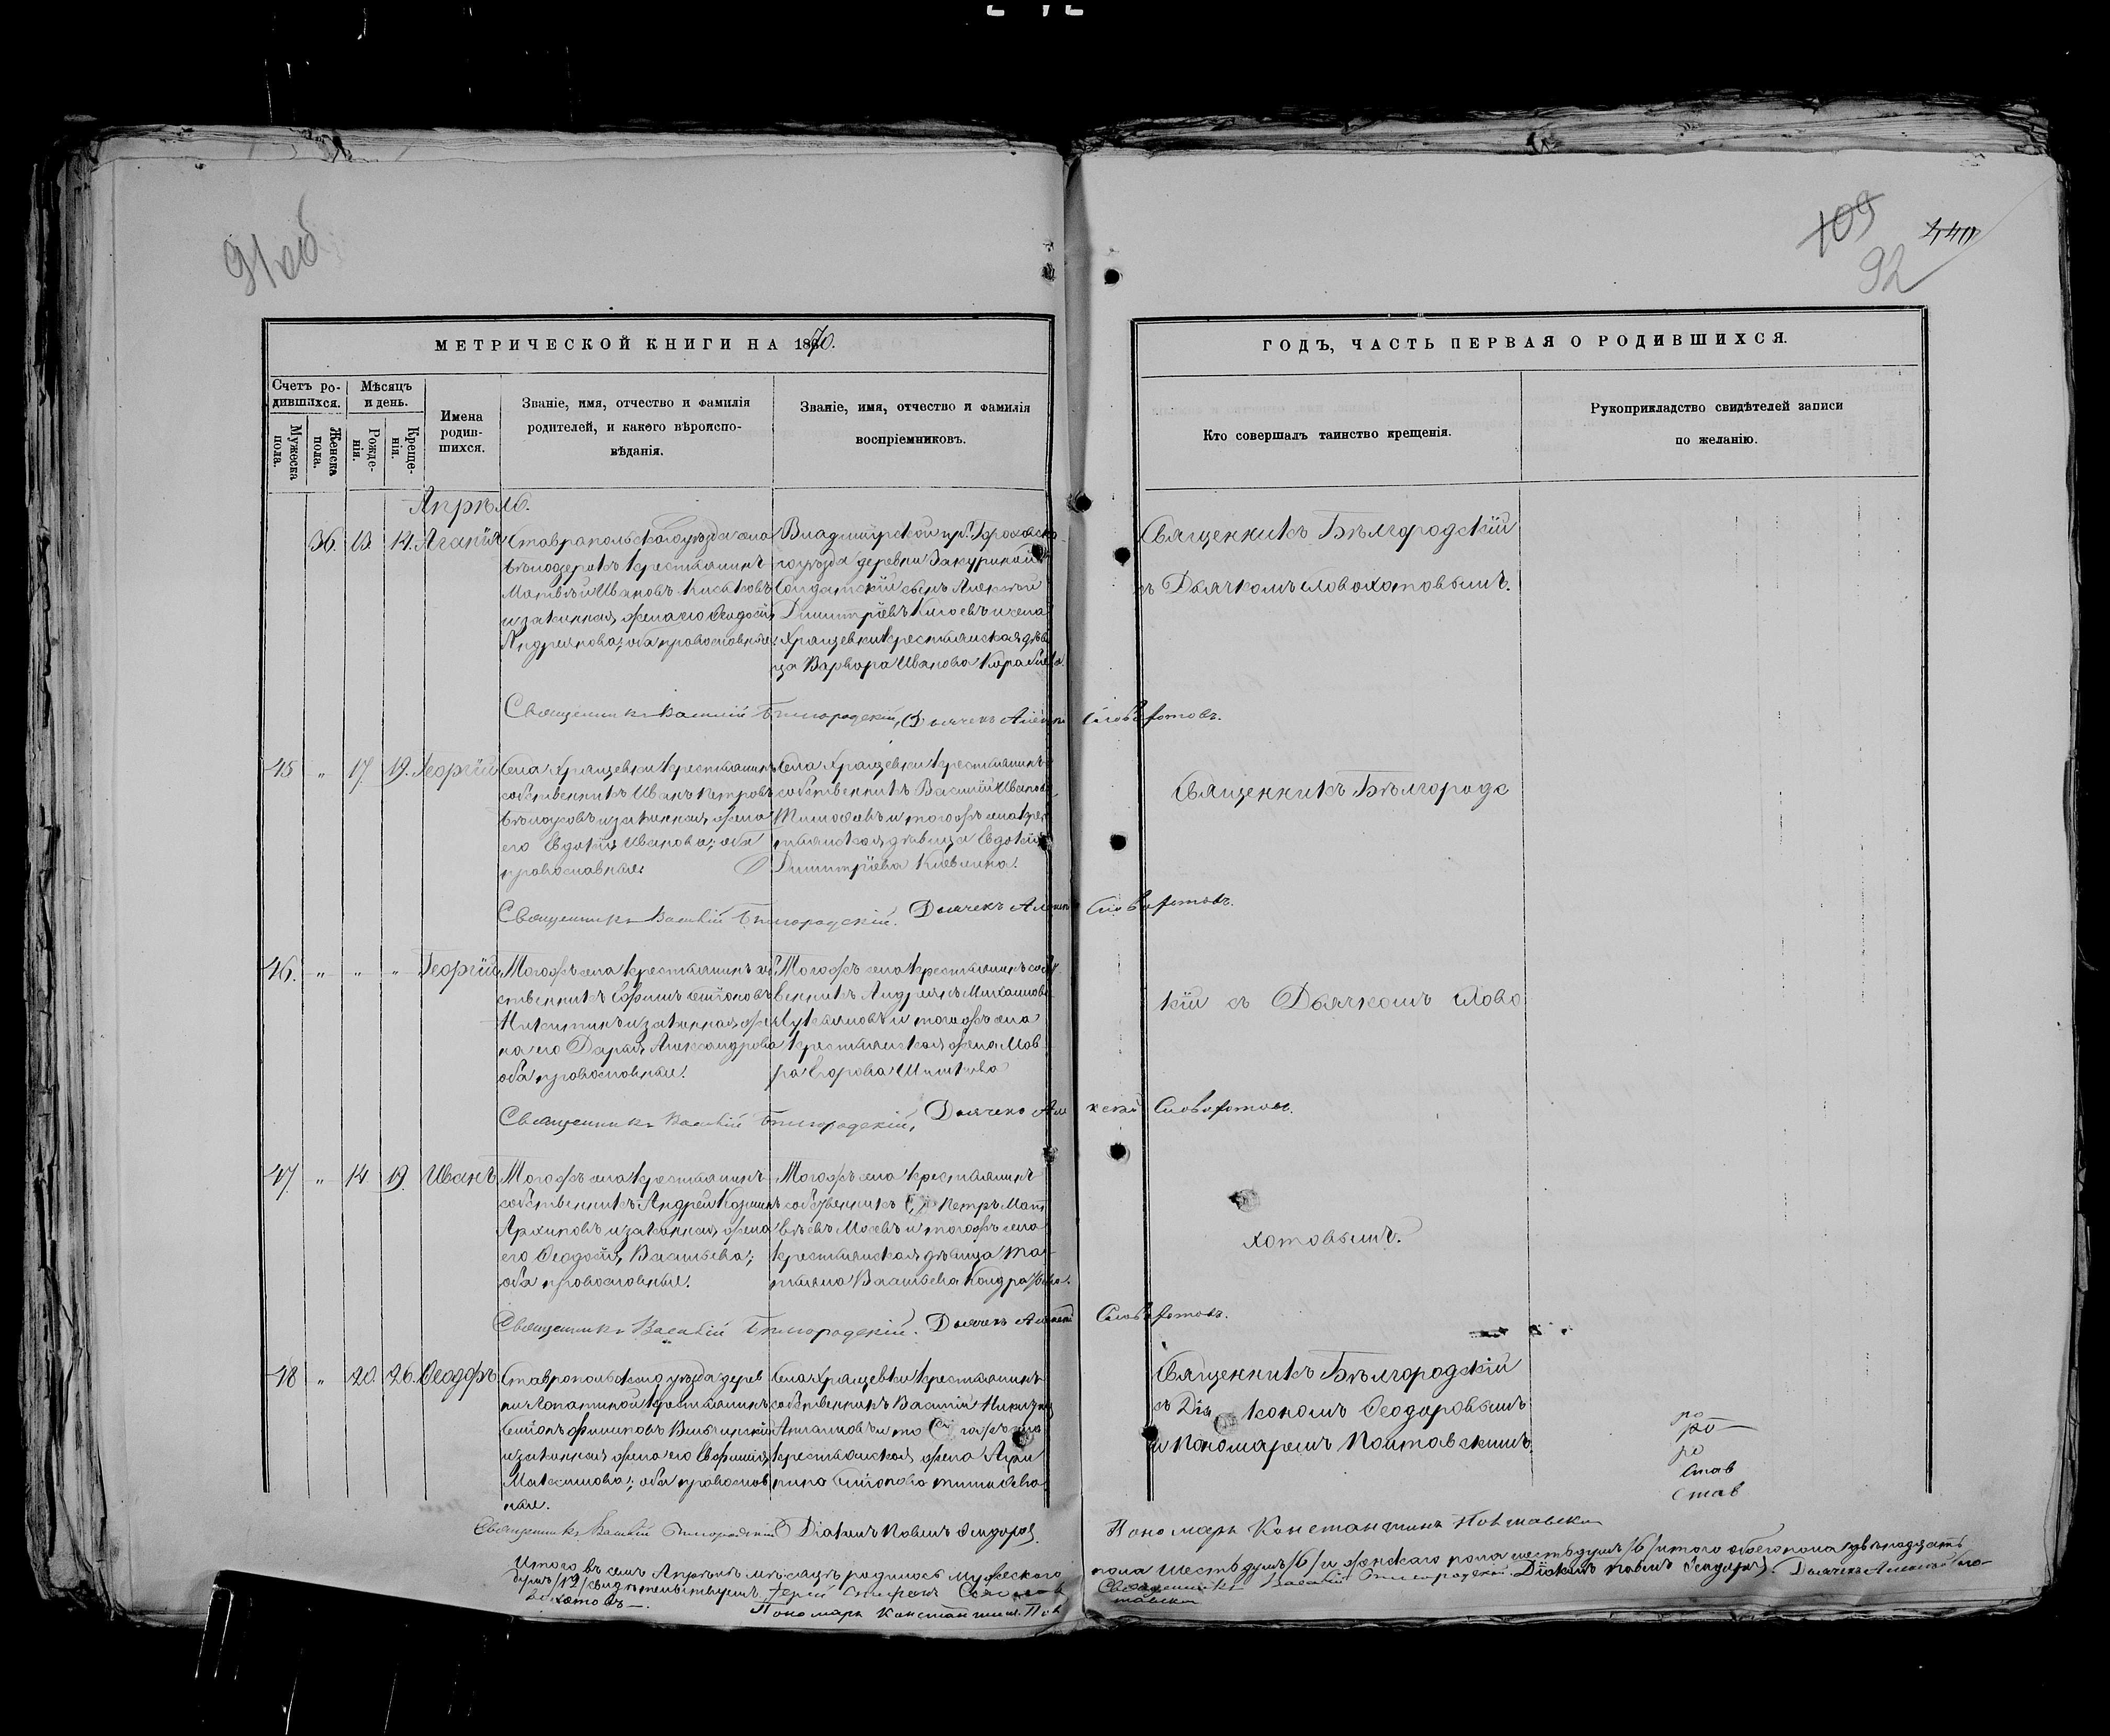 91 об
109
440
92
МЕТРИЧЕСКОЙ КНИГИ НА 1870.
ГОДЪ, ЧАСТЬ ПЕРВАЯ О РОДИВШИХСЯ.
Счетъ родившихся.
Мужеска пола.
Женска пола.
Мѣсяцъ и день.
Рожденія.
Крещенія.
Имена родившихся.
Званіе, имя, отчество и фамилія родителей, и какого вѣроисповѣданія.
Званіе, имя, отчество и фамилія воспріемниковъ.
Кто совершалъ таинство крещенія.
Рукоприкладство свидѣтелей записи по желанію.
Апрѣль.
36. 13. 14. Агапія
Ставропольскаго уѣзда села
крестьянинъ
Матвѣй Ивановъ
и законная жена его Ѳеодосія
Андреянова; оба православные.
Владимірской губ. Гороховска
го уѣзда деревни
Солдатскій сынъ Алексѣй
Димитріевъ и села
Хрящевки крестьянская дѣви
ца Варвара Иванова
Священникъ Бѣлгородскій
съ Дьячкомъ Словохотовымъ.
Священникъ Василій Бѣлгородскій, Дьячекъ Алексѣй Словохотовъ.
45 " 17 19. Георгій
Села Хрящевки крестьянинъ
собственникъ Иванъ Петровъ
Бѣлоусовъ и законная жена
его Евдокія Иванова; оба
православные
Села Хрящевки крестьянинъ
собственникъ Василій Ивановъ
и тогожъ села крес
тьянская дѣвица Евдокія
Димитріева
Священникъ Бѣлгородс
Священникъ Василій Бѣлгородскій. Дьячекъ Алексѣй Словохотовъ.
46. " " " Георгій
Тогожъ села крестьянинъ соб
ственникъ Ефимъ Симіоновъ
Никитинъ и законная же
на его Дарья Александрова
оба православные.
Тогожъ села крестьянинъ собст
венникъ Андреянъ Михайловъ
Лукьяновъ и тогожъ села
крестьянская жена Мав
ра Егорова
кій съ Дьячкомъ Слово
Священникъ Василій Бѣлгородскій, Дьячекъ Алексѣй Словохотовъ.
47. " 14 19. Иванъ
Тогожъ села крестьянинъ
собственникъ Андрей Козминъ
Архиповъ и законная жена
его Ѳеодосія Васильева;
оба православные.
Тогожъ села крестьянинъ
собственникъ Петръ Мат
вѣевъ Мосевъ и тогожъ села
крестьянская дѣвица Та
тьяна Васильева Кондратьева.
хотовымъ.
Священникъ Василій Бѣлгородскій. Дьячекъ Алексѣй Словохотовъ.
48 " 20. 26. Ѳеодоръ
Ставропольскаго уѣзда дерев
ни Лопатиной крестьянинъ
Симіонъ Филиповъ
и законная жена его Евфимія
Максимова; оба православ
ные.
Села Хрящевки крестьянинъ
собственникъ Василій
и тогожъ села
крестьянская жена Агри
пина Симіонова
Священникъ Бѣлгородскій
съ Діакономъ Ѳеодоровымъ
и Пономаремъ Полтавскимъ.
ро
ро
ро
Став
Став
Священникъ Василій Бѣлгородскій Діаконъ Павелъ Ѳеодоровъ Пономарь Константинъ Полтавскій
Итого въ семъ Апрѣлѣ мѣсяцѣ родилось мужескаго пола шесть душъ /6/ и женскаго пола шесть душъ /6/ итого обоего пола двѣнадцать
душъ /12/ свидѣтельствуемъ Священникъ Василій Бѣлгородскій Діаконъ Павелъ Ѳеодоровъ. Дьячекъ Алексѣй Сло-
вохотовъ. Пономарь Константинъ Полтавскій